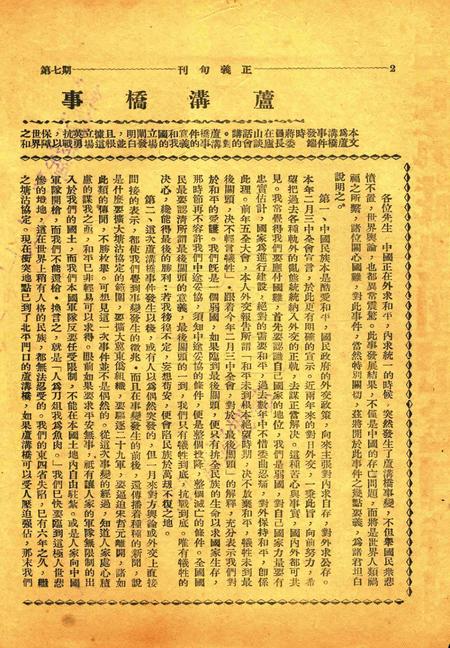 第七期　正義旬刊　2
蘆溝橋事
本文為蘆溝橋事件發端時蔣委員長在廬山談話會講的。對蘆溝橋事件的意義和我國的立場闡發明白，並且根據這立場英勇抗戰，以保障世界之和
各位先生　中國正在外求和平，內求統一的時候，突然發生了蘆溝橋事變，不但舉國民衆悲
憤不置，世界輿論，也都異常震驚。此事發展結果，不僅是中國的存亡問題，而將是世界人類禍
福之所繫，諸位關心國難，對此事件，當然特別關切，茲將關於此事件之幾點要義，為諸君坦白
說明之。
第一、中國民族本是酷愛和平，國民政府的外交政策，向來主張對內求自存，對外求共存。
本年二月三中全會宣言，於此更有明確的宣示。近兩年來的對日外交，一秉此旨，向前努力，希
望把過去各種軌外的亂態統統納入外交的正軌，去謀正當解決。這種苦心與事實，國內外都可共
見。我常覺得我們要應付國難，首先要認識自己國家的地位，我們是弱國，對自己國家力量要有
忠實估計，國家為進行建設，絕對的需要和平，過去數年中不惜委曲忍痛，對外保持和平，卽係
此理。前年五全大會，本人外交報告所謂「和平未到根本絕望時期，決不放棄和平，犧牲未到最
後關頭，決不輕言犧牲」。跟着今年二月三中全會，對於「最後關頭」的解釋，充分表示我們對
於和平的愛護。我們旣是一個弱國，如果臨到最後關頭，便只有拚全民族的生命以求國家生存，
那時節再不容許我們中途妥協，須知中途妥協的條件，便是整個投降，整個滅亡的條件。全國國
民最要認清所謂最後關頭的意義，最後關頭一到，我們只有犧牲到底，抗戰到底。唯有犧牲的
決心，纔能博得最後的勝利；若我徬徨不定，妄想苟安，便會陷民族於萬刦不復之地。
第二、這次蘆溝橋事件發生以後，或有人以為偶然突發的，但一月來對方輿論或外交上直接
間接的表示，都使我們覺到事變發生的徵兆。而且在事變發生的前後，還傳播着種種的新聞，說
是什麼要擴大塘沽協定的範圍，要擴大冀東僞組織，要驅逐二十九軍，要逼迫宋哲元離開，諸如
此類的傳聞，不勝枚舉。可想見這一次事件並不是偶然的。從這次事變的經過，知道人家處心積
慮的謀我之亟，和平已非輕易可以求得。眼前如果要求平安無事，祇有讓人家的軍隊無限制的出
入於我們的國土，而我們本國軍隊反要任受限制，不能在本國土地內自由駐紮。或是人家向中國
軍隊開槍，而我們不能還槍。換言之，就是「人為刀俎我為魚肉」。我們已快要臨到這極人世悲
慘的境地，這在世界上稍有人格的民族，都無法忍受的。我們的東四省失陷，已有六年之久，繼
之塘沽協定。現在衝突地點已到了北平門口的蘆溝橋，如果蘆溝橋可以受人壓迫强佔，那末我們